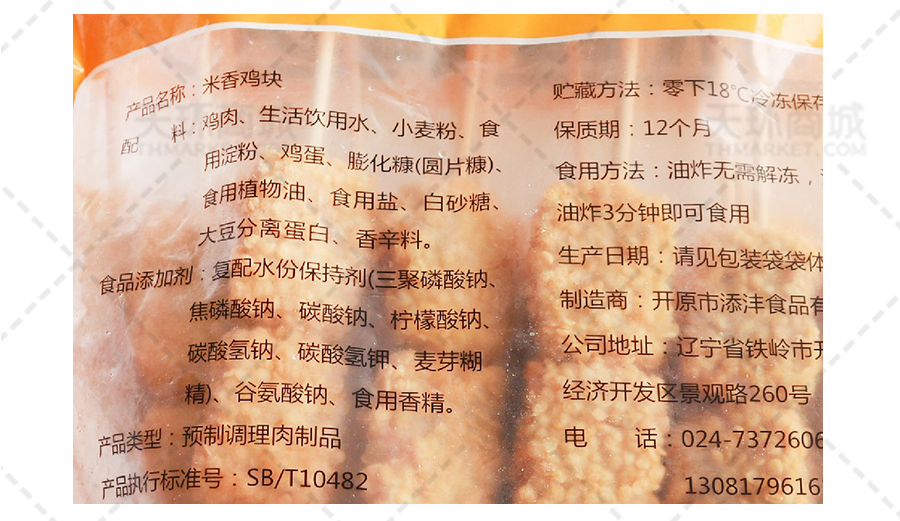 产品名称：米香鸡块
配 料：鸡肉、生活饮用水、小麦粉、食
用淀粉、鸡蛋、膨化糠(圆片糠)、
食用植物油、食用盐、白砂糖、
大豆分离蛋白、香辛料。
食品添加剂：复配水份保持剂(三聚磷酸钠、
焦磷酸钠、碳酸钠、柠檬酸钠、
碳酸氢钠、碳酸氢钾、麦芽糊
精)、谷氨酸钠、食用香精。
产品类型：预制调理肉制品
产品执行标准号：SB/T10482
贮藏方法：零下18℃冷冻保存
保质期：12个月
食用方法：油炸无需解冻，
油炸3分钟即可食用
生产日期：请见包装袋袋体
制造商：开原市添沣食品有
公司地址：辽宁省铁岭市开
经济开发区景观路260号
电 话：024-7372606
1308179616
天环商城
THMARKET.COM
天环商城
THMARKET.COM